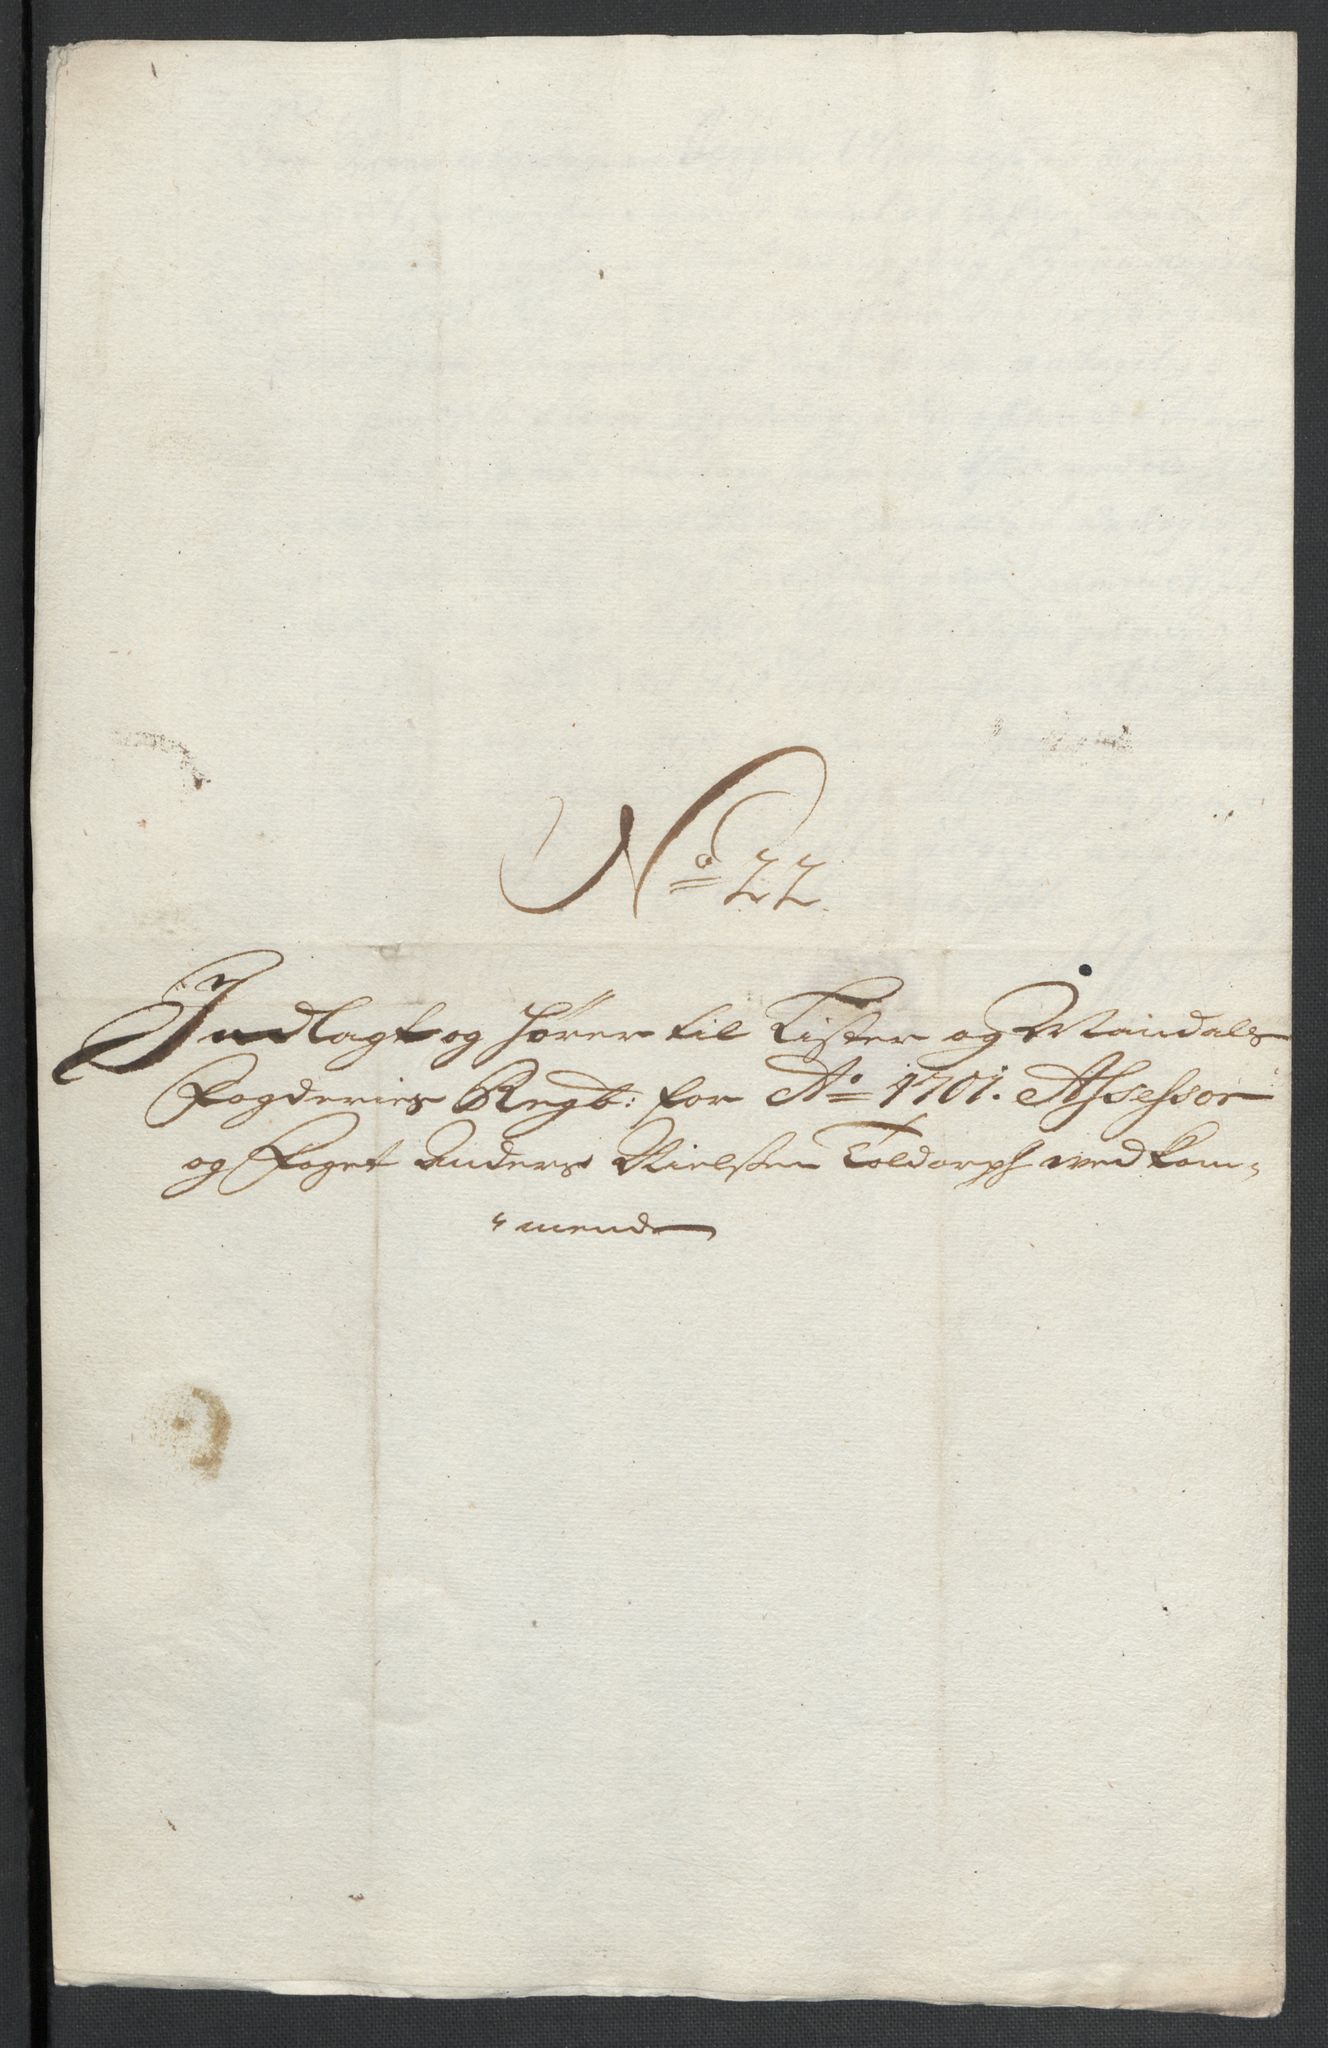 No 22
Indlagt og hører til Lister og Mandals
Fogderies Regb: for Ao 1701. Assessor
og Foget Anders Nielsen Toldorph ved kom-
mende